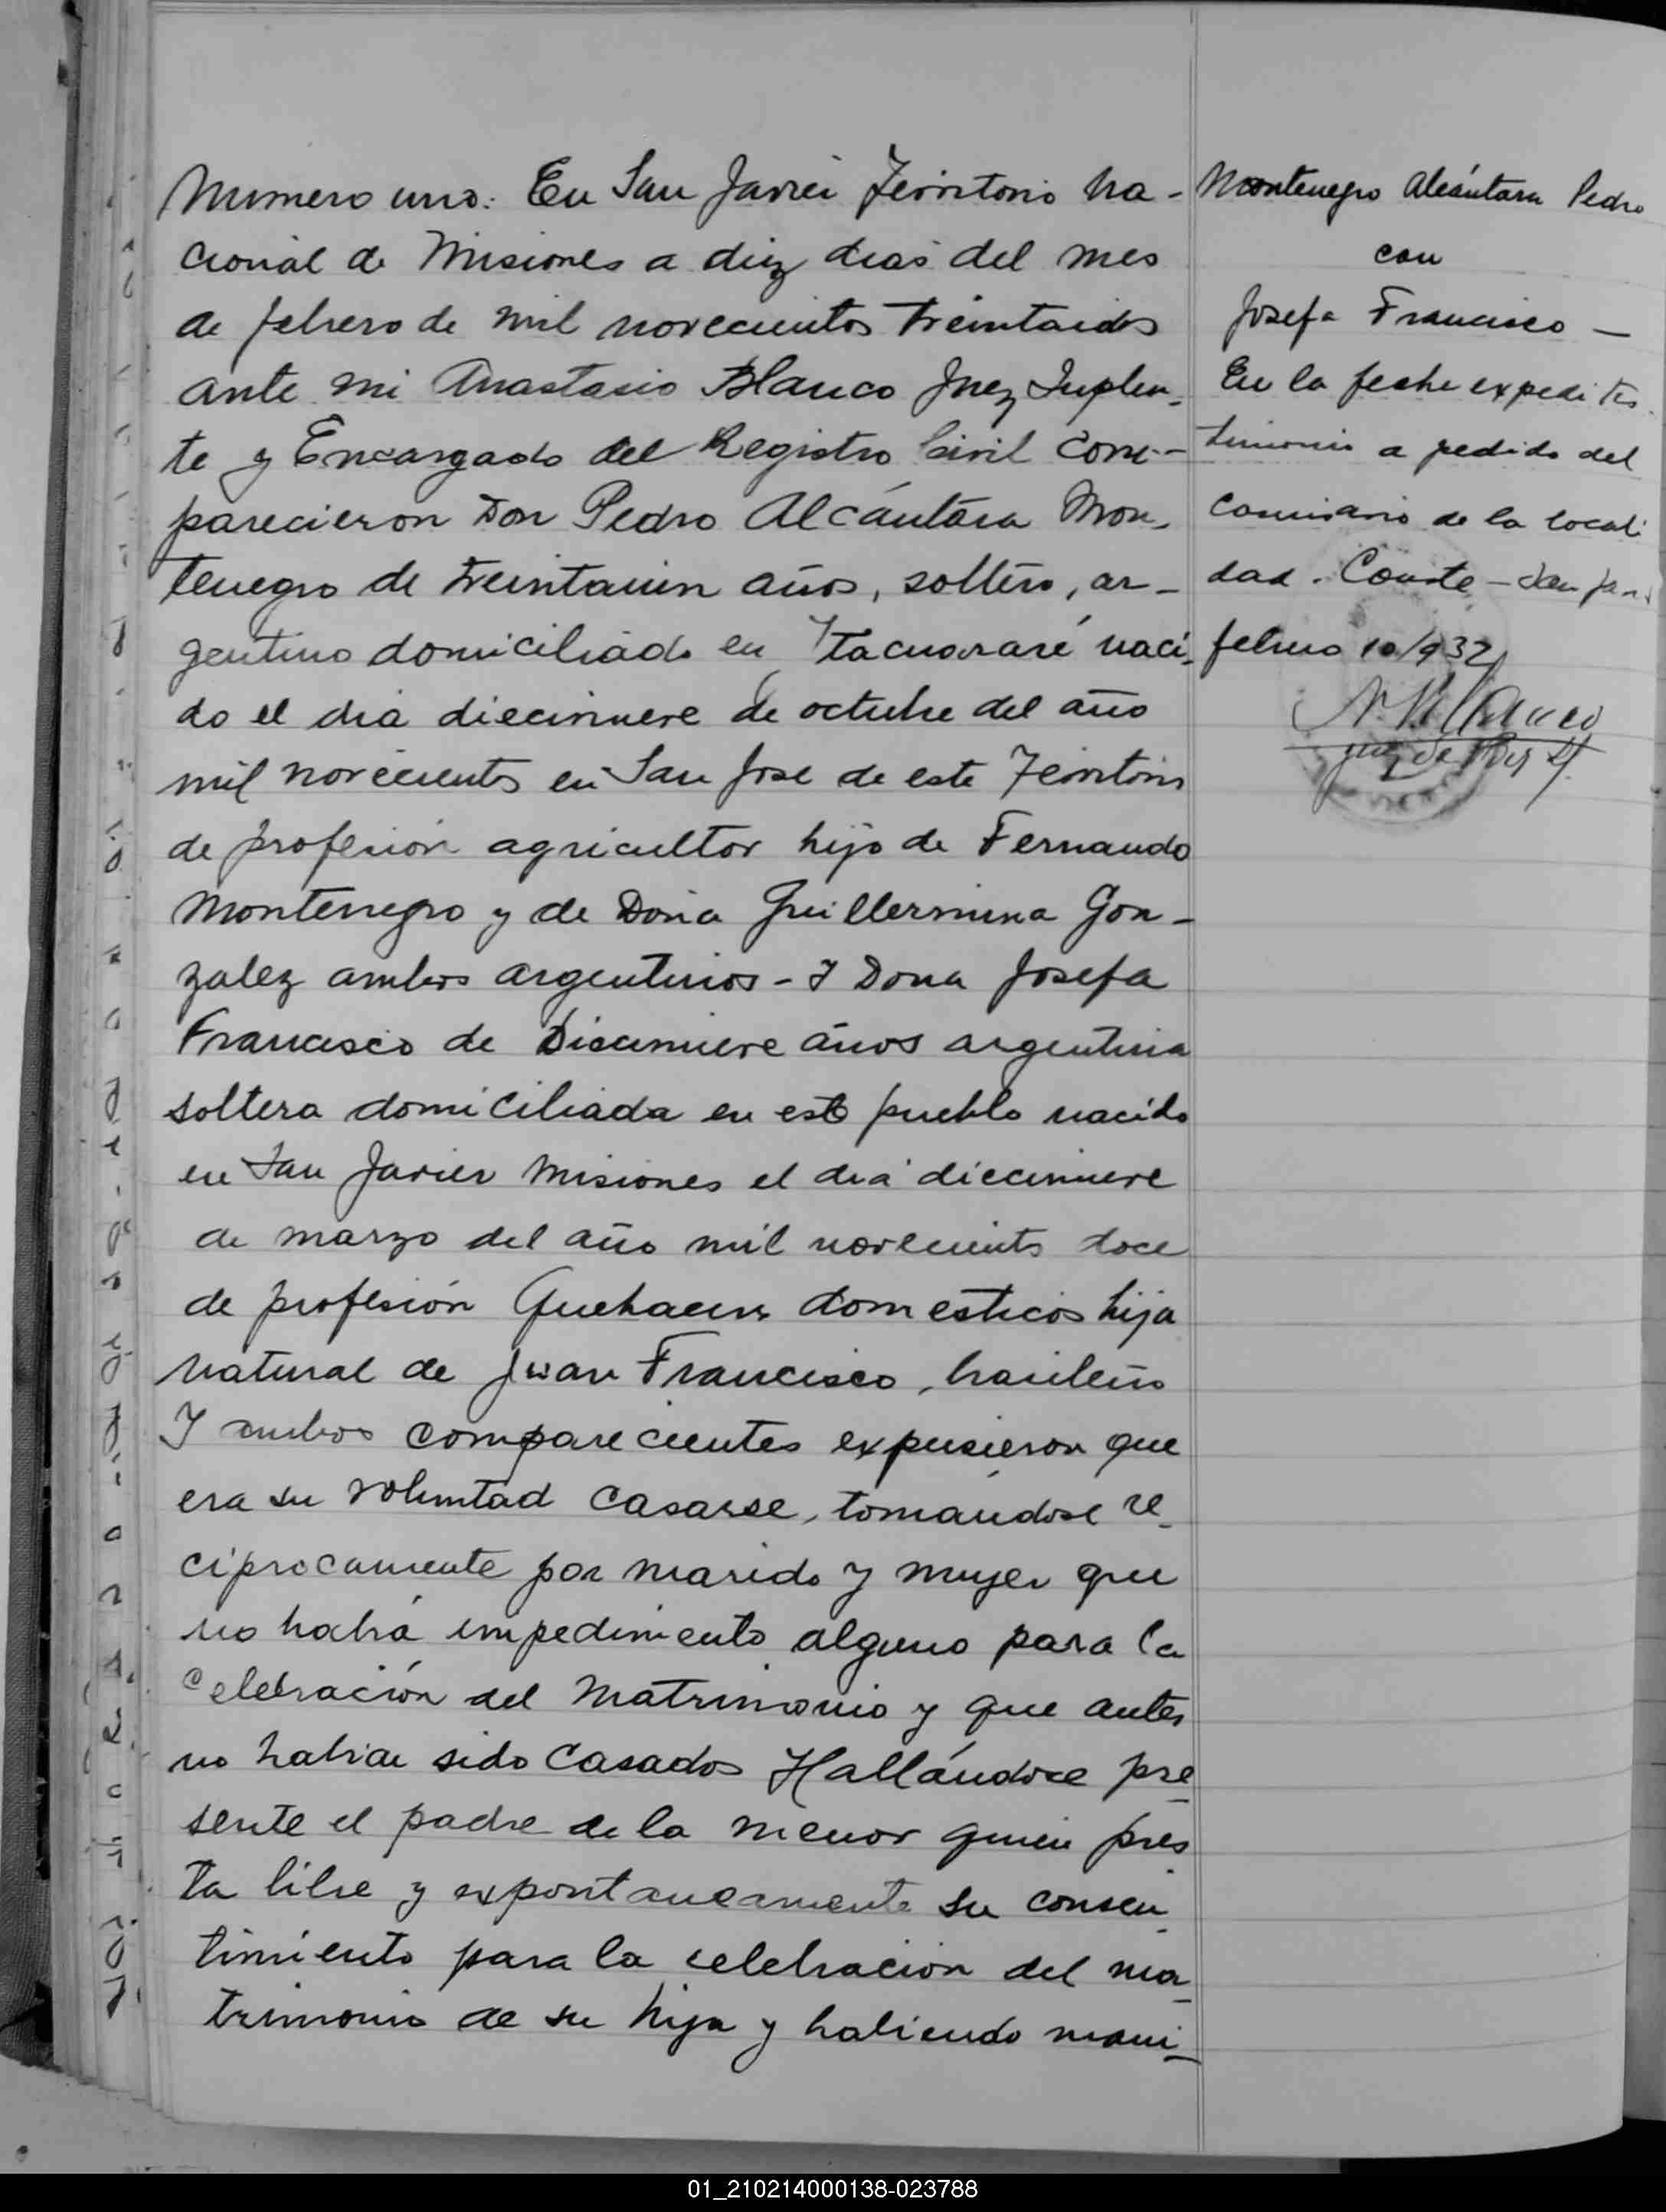 Numero uno: En San Javier Territorio Na-
cional de Misiones a diez dias del mes
de febrero de mil novecientos treintaidos
ante mi Anastasio Blanco Juez Suplen-
te y Encargado del Registro Civil Com-
parecieron Don Pedro Alcántara Mon-
tenegro de treintaiun años, soltero, ar-
gentino domiciliado en Itacuararé naci-
do el dia diecinueve de octubre del año
mil novecientos en San José de este Territorio
de profesión agricultor hijo de Fernando
Montenegro y de Doña Guillermina Gon-
zalez ambos argentinos - Y Dona Josefa
Francisco de Diecinueve años argentina
soltera domiciliada en este pueblo nacida
en San Javier Misiones el dia diecinueve
de marzo del año mil novecientos doce
de profesión Quehaceres domesticos hija
natural de Juan Francisco, brasileño
Y ambos comparecientes expusieron que
era su voluntad casarse, tomándose re-
ciprocamente por marido y mujer que
no había impedimento alguno para la
celebración del Matrimonio y que antes
no habian sido Casados Hallándose pre-
sente el padre de la menor quien pres-
ta libre y expontaneamente su consen-
timiento para la celebración del ma-
trimonio de su hija y habiendo mani-
Montenegro Alcántara Pedro
con
Josefa Francisco —
En la fecha expedi tes-
timonio a pedido del
Comisario de la locali
dad. Conste - San
febrero 10/932
A. Blanco
Juez de Paz
01_210214000138-023788